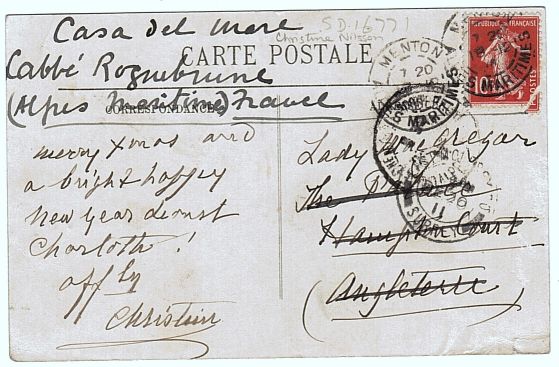 Casa del Mare
S.D.16771
Christine Nilsson
CARTE POSTALE
Cabbé Roquebrune
(Alpes Maritime) France
CORRESPONDANCE
merry Xmas and
a bright & happy
New year dearest
Charlotte!
affly
Christine
Lady McGregor
The
Hampton Court
(Angleterre)
MENTON
7 20
RÉPUBLIQUE FRANÇAISE
10
POSTES
MARITIMES
MARITIMES
DEC 26
11